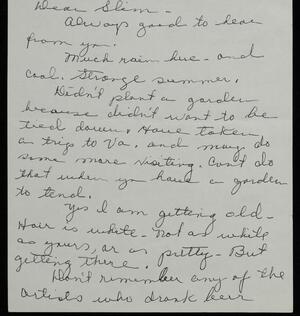 Dear Slim -
Always good to hear
from you.
Much rain here - and
cool. Strange summer.
Didn't plant a garden
because didn't want to be
tied down. Have taken
a trip to Va. and may do
some more visiting. Can't do
that when you have a garden
to tend.
Yes I am getting old -
Hair is white - not as white
as yours, or as pretty - But
getting there.
Don't remember any of the
artists who drank beer